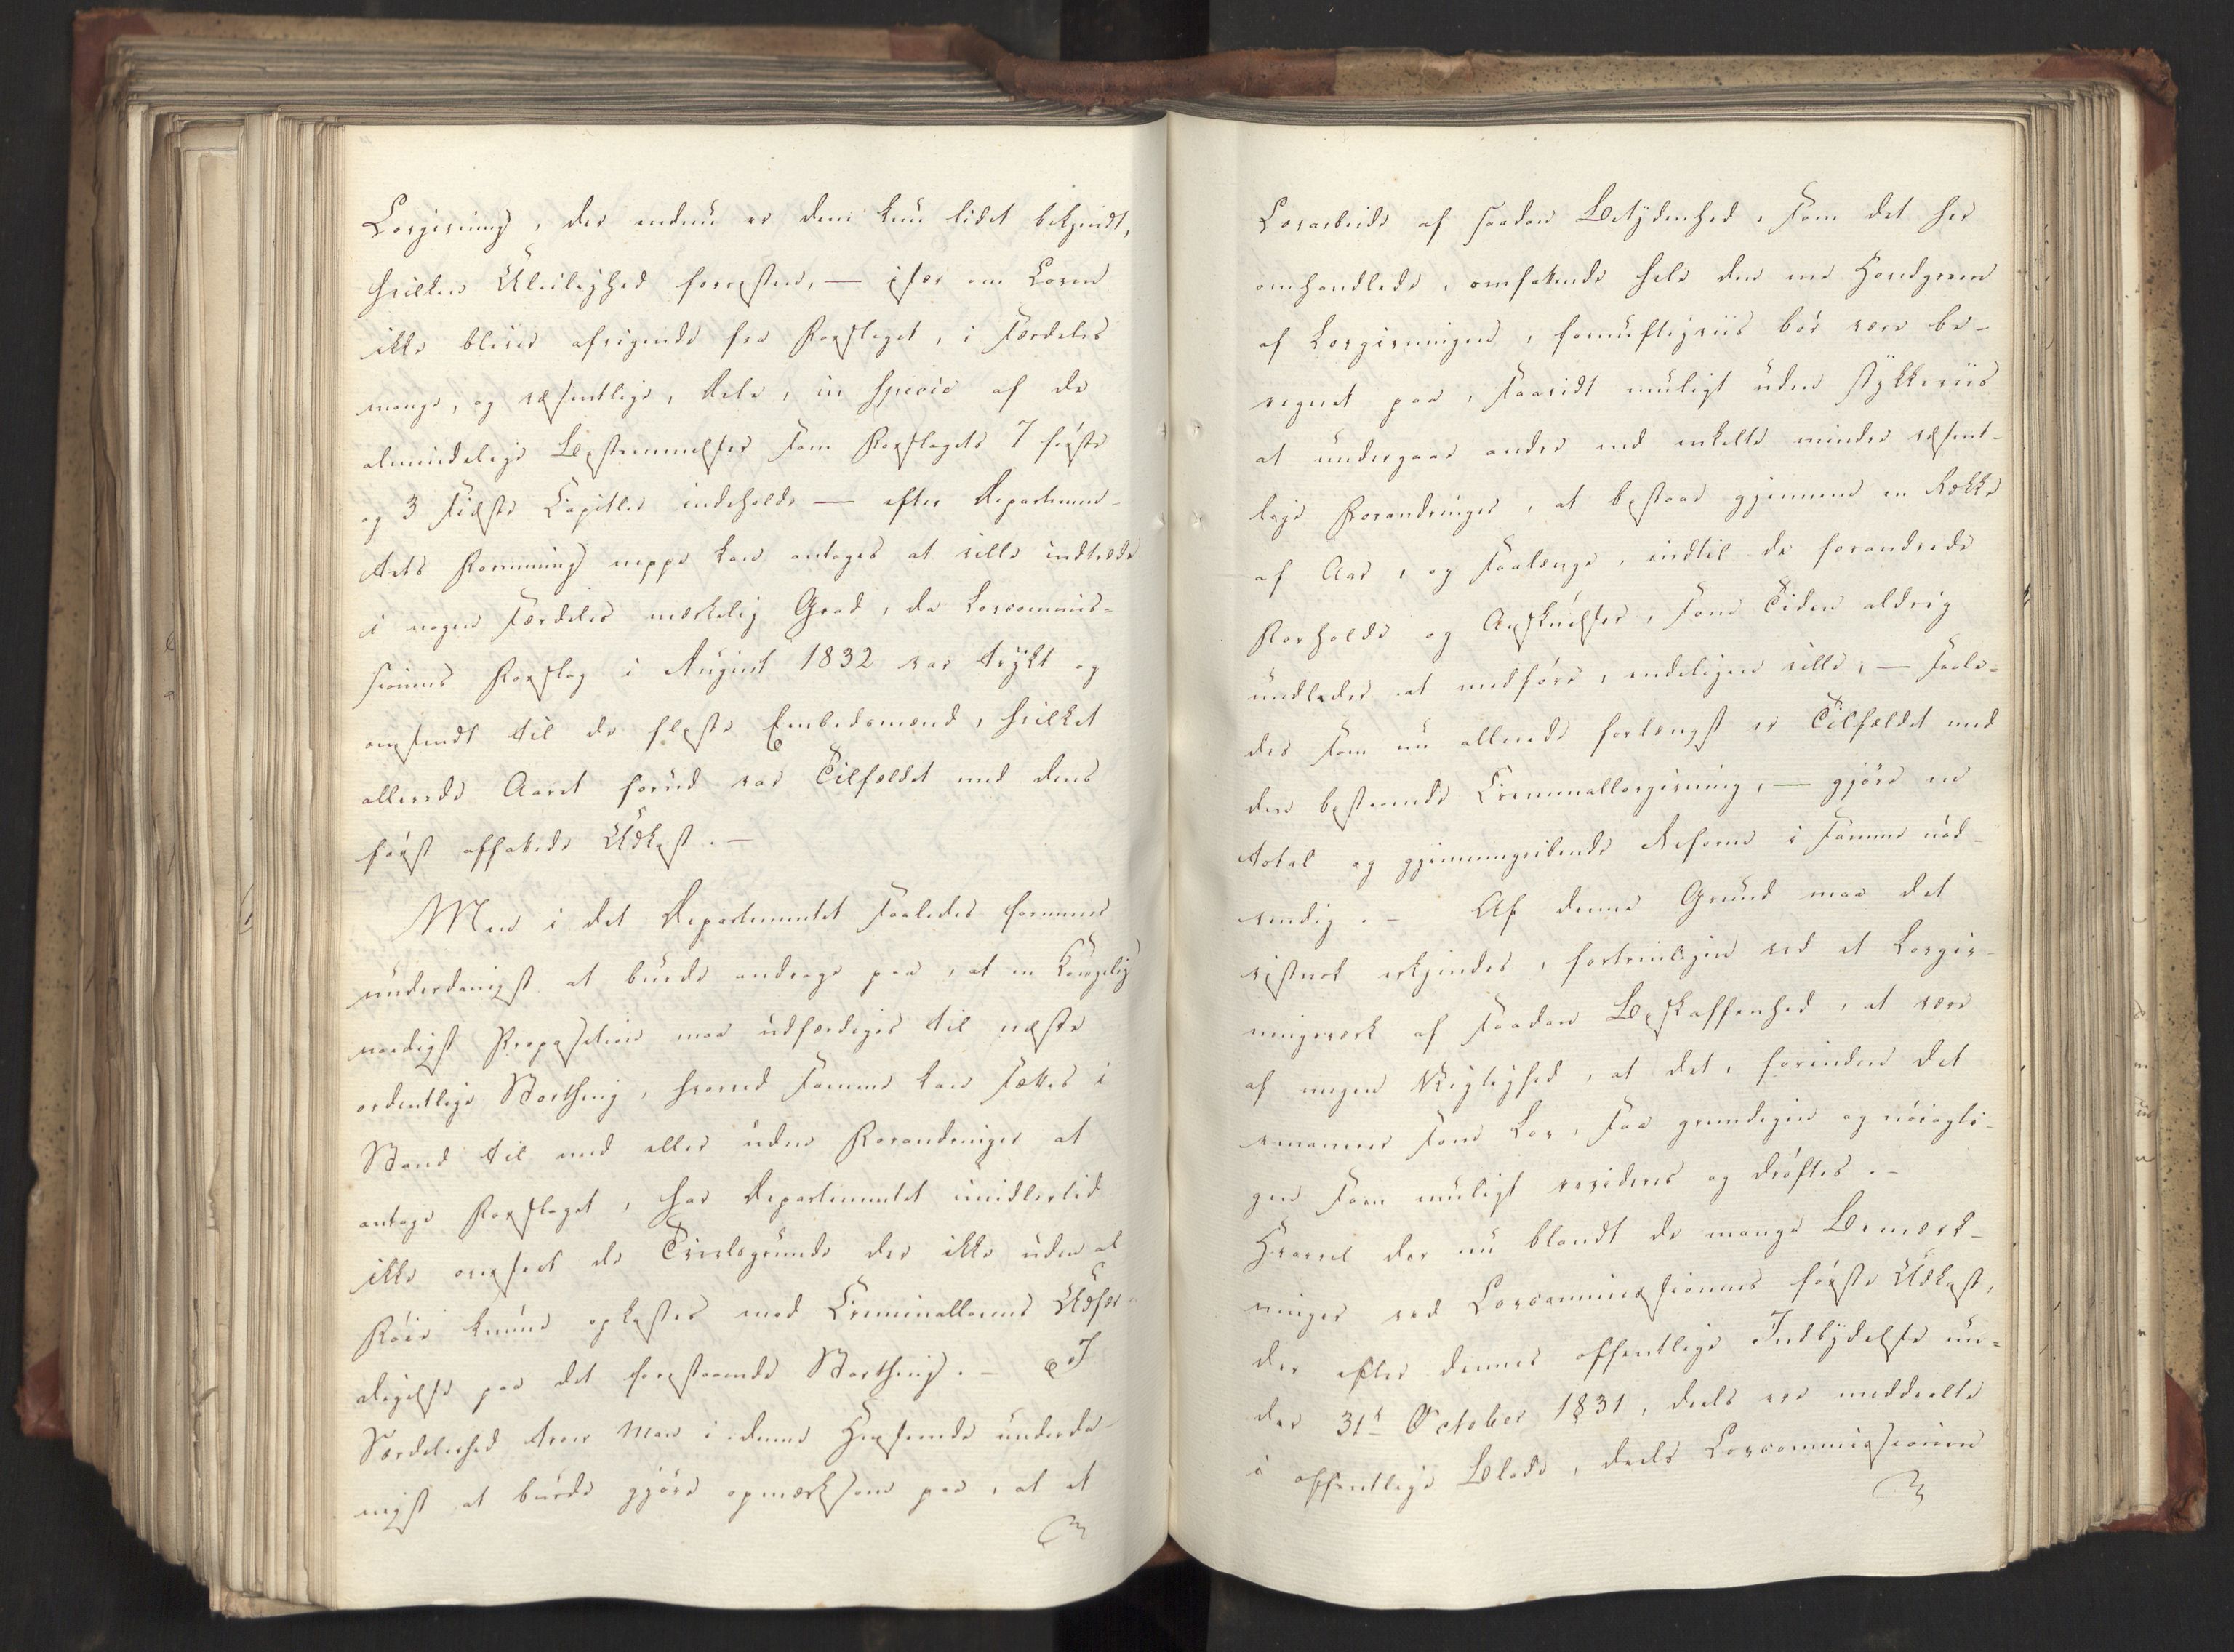 Lovgivning, der endnu er dem kun lidet bekjendt,
hvilken Uleilighed forresten, — især om Loven
ikke bliver afvigende fra Forslaget, i særdeles
mange, og væsentlige, Dele, in specie af de
almindelige Bestemmelser som Forslagets 7 første
og 3 sidste Capitler indeholde — efter Departemen-
tets Formening neppe kan antages at ville indtræde
i nogen særdeles mærkelig Grad, da Lovcommis-
sionens Forslag i August 1832 var trykt og
omsendt til de fleste Embedsmænd, hvilket
allerede Aaret forud var Tilfældet med dens
først affattede Udkast. —
Men i det Departementet saaledes formener
underdanigst at burde andrage paa, at en Kongelig
naadigst Proposition maa udfærdiges til næste
ordentlige Storthing, hvorved samme kan sættes i
Stand til med eller uden Forandringer at
antage Forslaget, har Departementet imidlertid
ikke overseet de Tvivlsgrunde der ikke uden al
Føie kunne opkastes mod Criminallovens Udfær-
digelse paa det forestaaende Storthing. — I
Særdeleshed troer Man i denne Henseende underda-
nigst at burde gjøre opmærksom paa, at et
Lovarbeide af saadan Betydenhed, som det her
omhandlede, omfattende hele den ene Hovedgreen
af Lovgivningen, fornuftigviis bør være be-
regnet paa, saavidt muligt uden stykkeviis
at undergaae andre end enkelte mindre væsent-
lige Forandringer, at bestaae gjennem en Række
af Aar, og saalænge, indtil de forandrede
Forholde og Anskuelser, som Tiden aldrig
undlader at medføre, endeligen ville, — saale-
des som nu allerede forlængst er Tilfældet med
den bestaaende Criminallovgivning, — gjøre en
total og gjennemgribende Reform i samme nød-
vendig. — Af denne Grund maa det
vistnok erkjendes, fortrinligen ved et Lovgiv-
ningsværk af saadan Beskaffenhed, at være
af megen Vigtighed, at det, forinden det
emanerer som Lov, saa grundigen og nøiagti-
gen som muligt revideres og drøftes. —
Hvorvel der nu blandt de mange Bemærk-
ninger ved Lovcommissionens første Udkast,
der efter dennes offentlige Indbydelse un-
der 31te October 1831, deels ere meddeelte
i offentlige Blade, deels Lovcommissionen